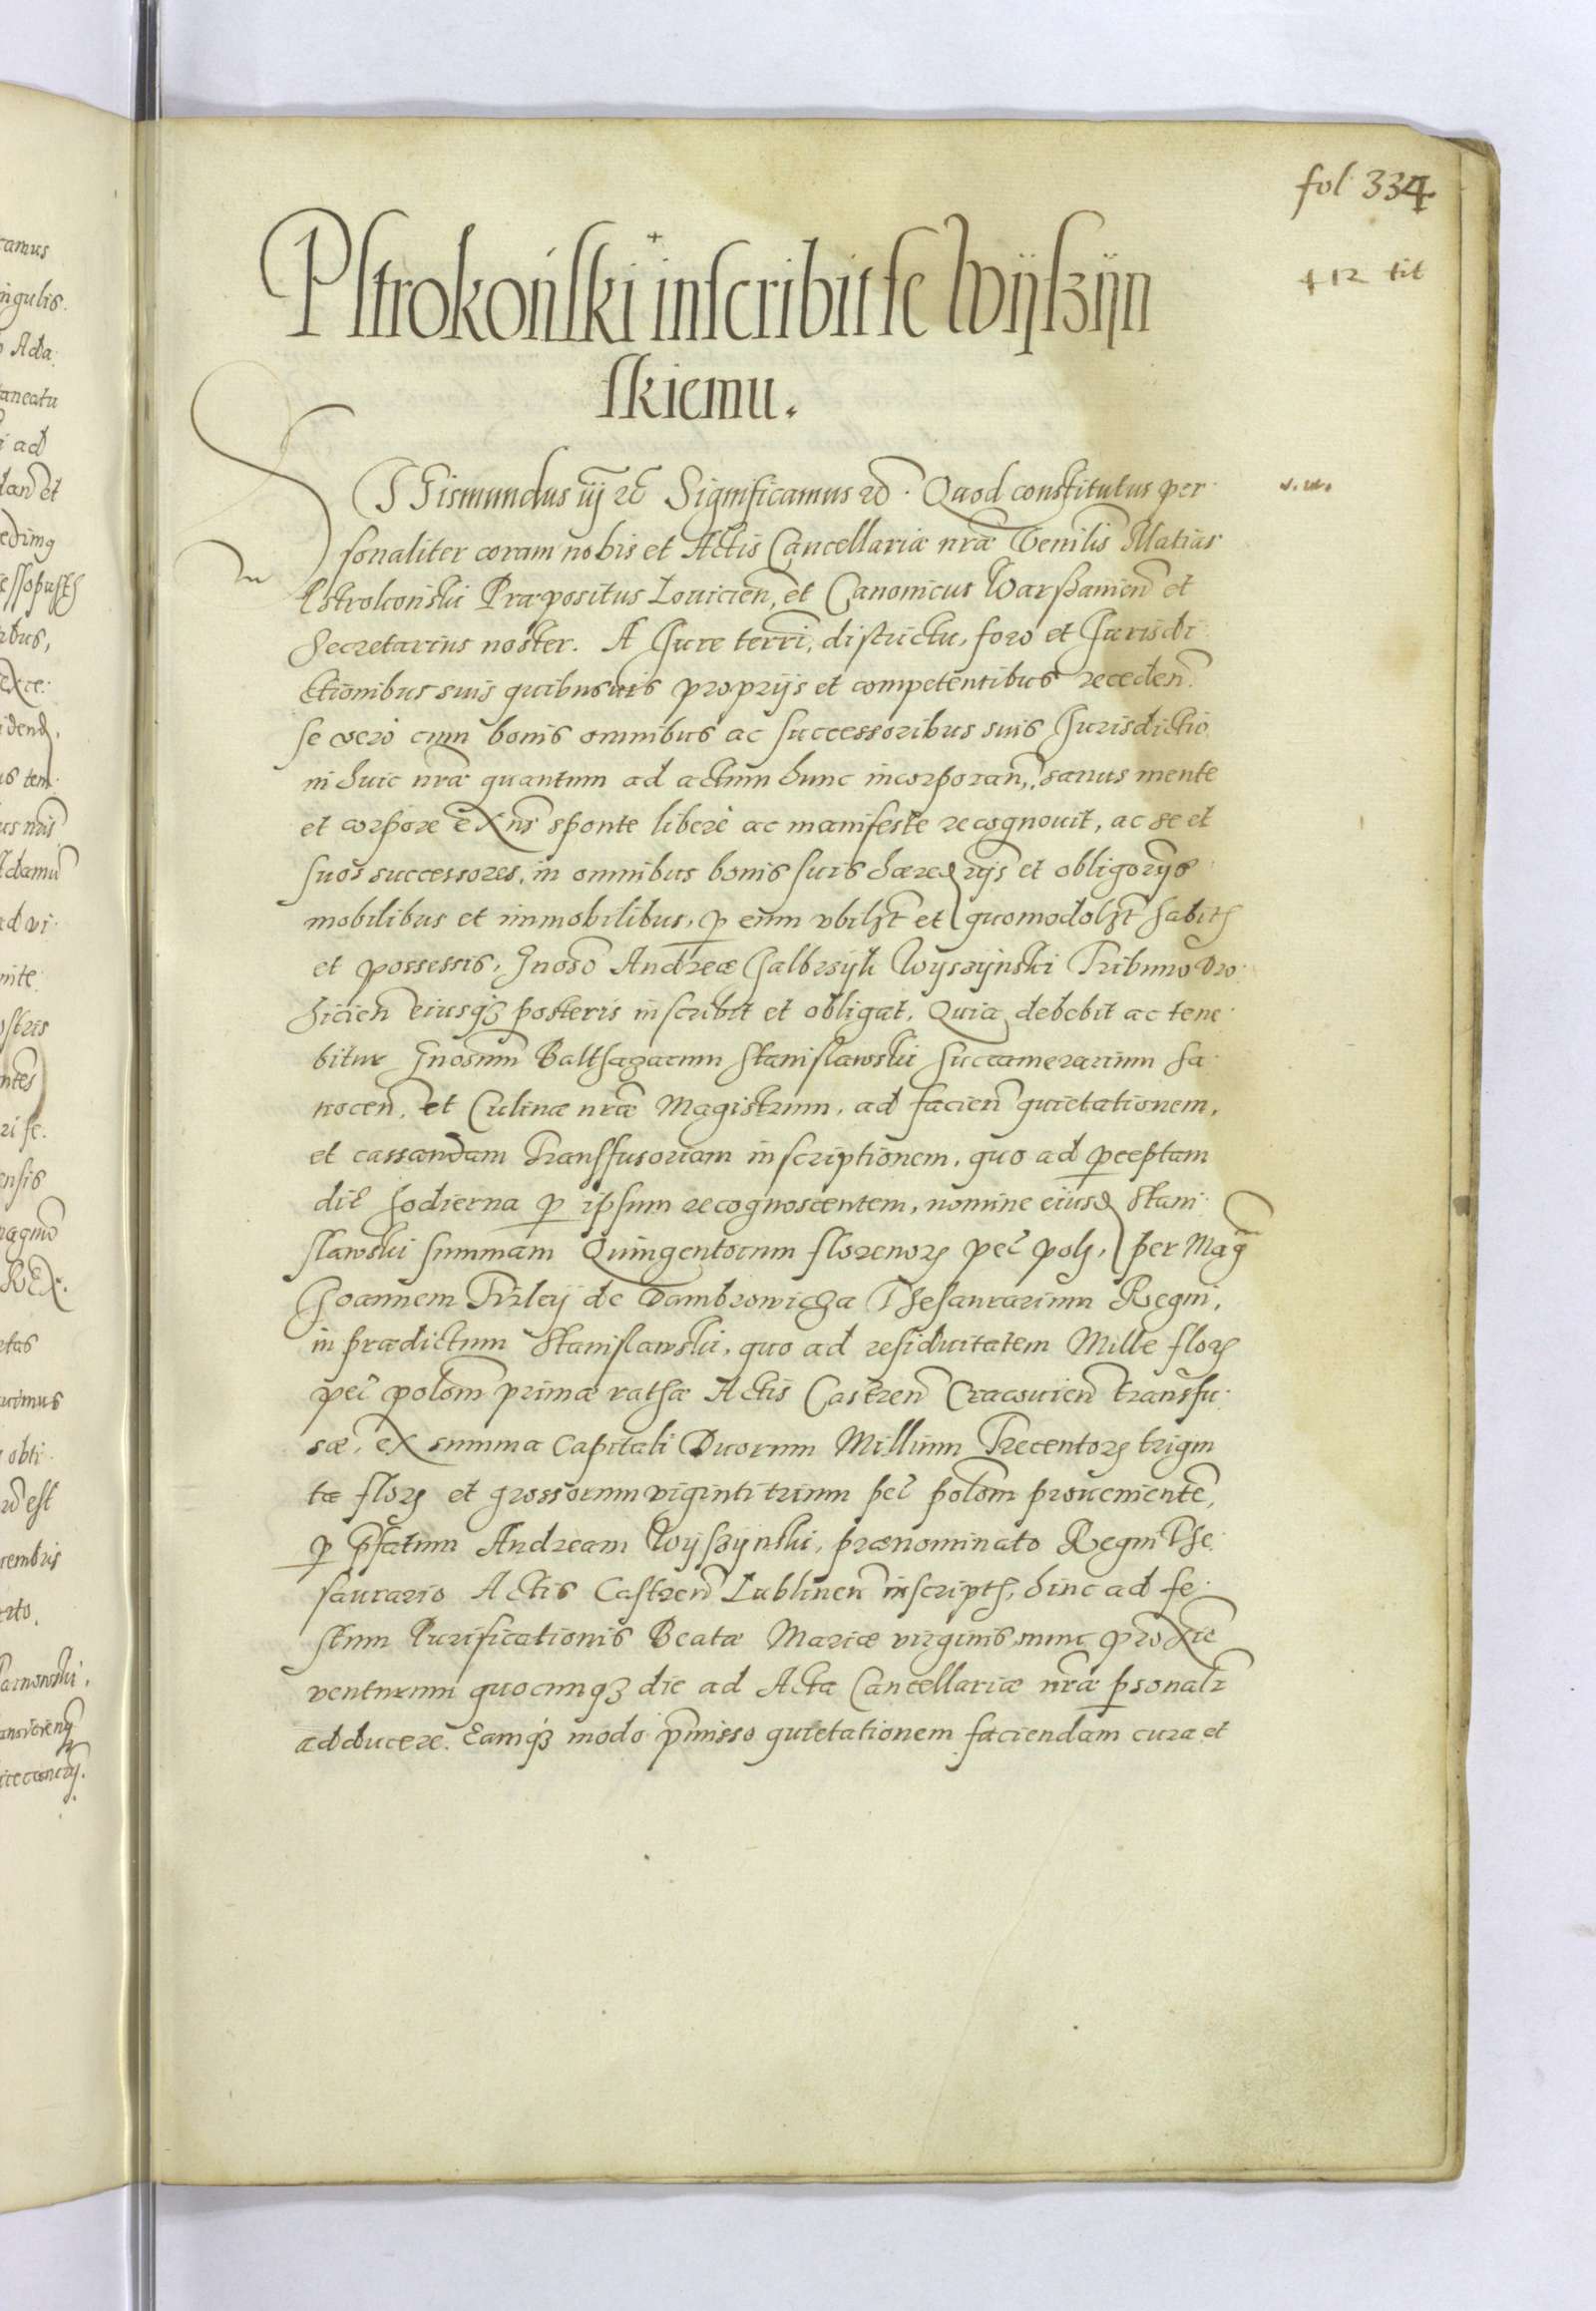 fol. 334
+ 12 tit
Pstrokoński inscribit se Wÿszÿn
skiemu.
SIGismundus iij etc Significamus etc. Quod constitutus per
v. w.
sonaliter coram nobis et Actis Cancellariæ nræ Venīlis Matias
Pstrokonski Præpositus Louicień, et Canonicus Warszauień et
Secretarius noster. A Jure terrī, districtu, foro et Jurisdi
ctionibus suis quibusuis proprijs et competentibus receden̄.
se vero cum bonis omnibus ac successoribus suis Jurisdictio
ni huic nræ quantum ad actum hunc incorporan̄, sanus mente
et corpore exn̄s sponte liberè ac manifeste recognouit, ac se et
suos successores, in omnibus bonis suis hæred rijs et obligorijs
mobilibus et immobilibus, p eum vbilzt et quomodolzt habitz
et possessis, Gnoso Andreæ Jalbrzÿk Wyszÿnski Tribuno Dro
hicień eiusqz posteris inscribit et obligat, Quia debebit ac tene
bitur Gnosum Balthazarum Stanislawski Succamerarium Sa
nocen̄, et Culinæ nræ Magistrum, ad facien̄ quietationem,
et cassandam Transfusoriam inscriptionem, quo ad pceptam
die hodierna p ipsum recognoscentem, nomine eiusd Stani
slawski summam Quingentorum florenorz pec polz, per Mag
Joannem Firleÿ de Dambrowicza Thesaurarium Regni,
in prædictum Stanislawski, quo ad residuitatem Mille florz
pec polom primæ rathæ Actis Castren̄ Cracouien̄ transfu
sæ, ex summa capitali Duorum Millium Trecentorz trigin
ta florz et grossorum viginti trium pec polom proueniente,
p pfatum Andream Wyszÿnski, prænominato Regni The
saurario Actis Castren̄ Lublinen̄ inscriptz, hinc ad fe
stum Purificationis Beatæ Mariæ virginis nunc proxie
venturum quocunqz die ad Acta Cancellariæ nræ psonalr
adducere. Eamqz modo pmisso quietationem faciendam cura et